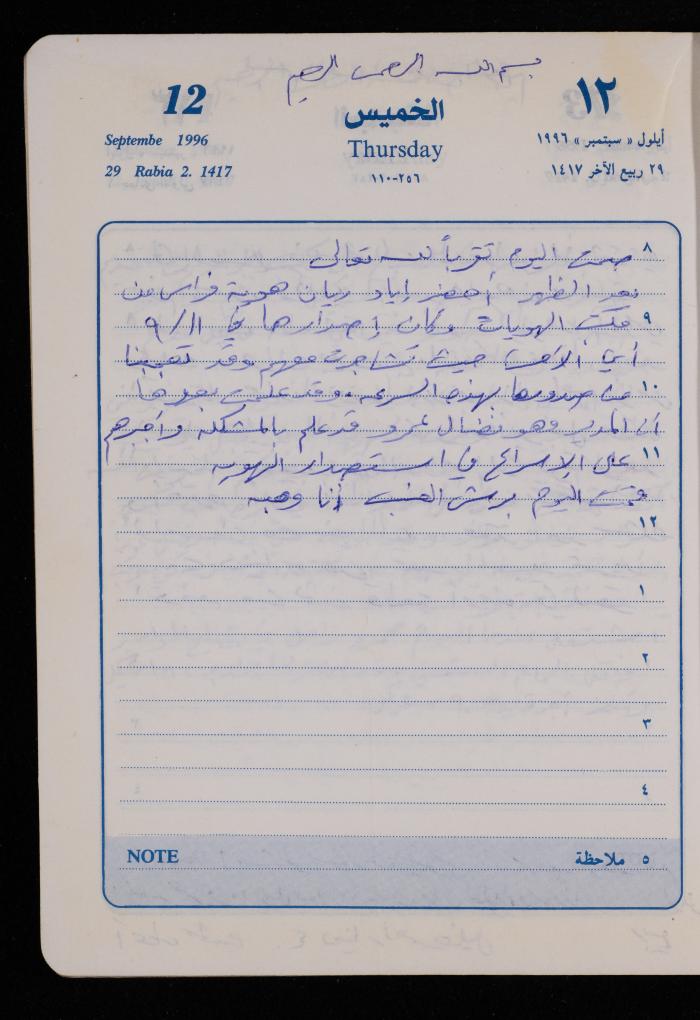 بسم الله الرحمن الرحيم
12
١٢
الخميس
Septembe 1996
Thursday
أيلول « سبتمبر » ١٩٩٦
29 Rabia 2. 1417
٢٩ ربيع الآخر ١٤١٧
٢٥٦-١١٠
٨ صمت اليوم تقرباً لله تعالى
بعد الظهر أحضر إياد ريان هوية فراس من
٩ مكتب الهويات وكان إصدارها في ٩/١١
أي الأمس حيث تشاجرت معهم وقد تعجبنا
١٠ من صدورها بهذه السرعة وقد علمت بعدها
أن المدير وهو نضال عمرو قد علم بالمشكلة وأجبرهم
١١ على الإسراع في استصدار الهوية
قمت اليوم برش العنب أنا وهبه
١٢
١
٢
٣
٤
NOTE
٥ ملاحظة